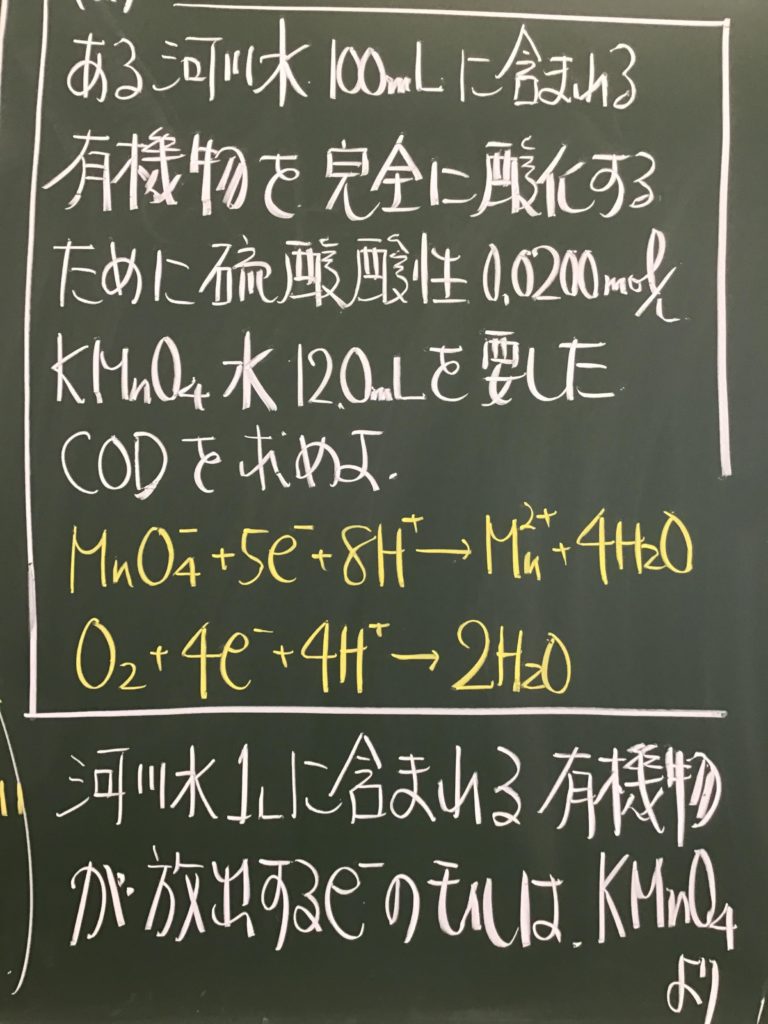 ある河川水100mLに含まれる
有機物を完全に酸化する
ために硫酸酸性0.0200mol/L
KMnO₄水12.0mLを要した
CODを求めよ.
MnO₄⁻+5e⁻+8H⁺→Mn²⁺+4H₂O
O₂+4e⁻+4H⁺→2H₂O
河川水1Lに含まれる有機物
が放出するe⁻のモルは、KMnO₄
より